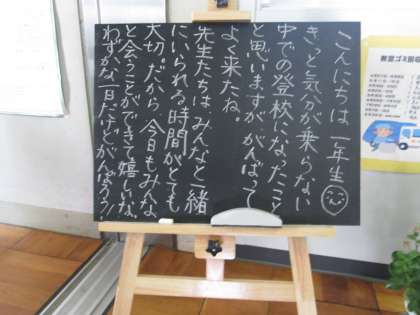 こんにちは 一年生
きっと気分が乗らない
中での登校になったこと
と思いますが がんばって
よく来たね。
先生たちは みんなと一緒
にいられる時間がとても
大切。だから 今日もみんな
と会うことができて嬉しいな。
わずかな一日だけどがんばろう!